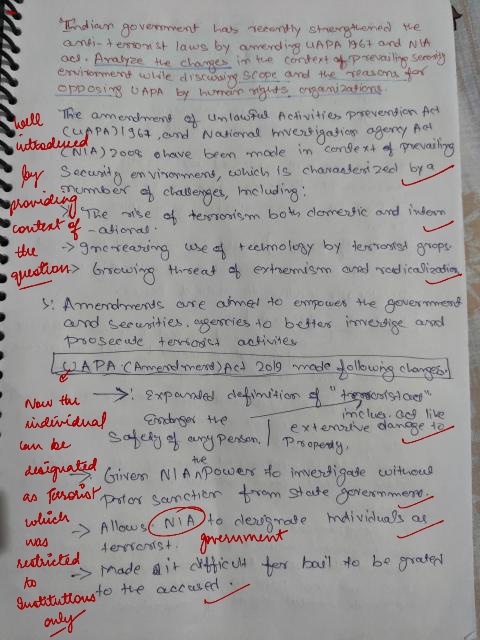 Indian government has recently strengthened the
anti-terrorist laws by amending UAPA 1967 and NIA
act. Analyze the changes in the context of prevailing security
environment while discussing scope and the reasons for
opposing UAPA by human rights organizations.
The amendment of Unlawful Activities prevention Act
(UAPA) 1967, and National Investigation agency Act
(NIA) 2008 have been made in context of prevailing
Security environment, which is characterized by a
number of challenges, Including:
-> The rise of terrorism both domestic and intern
-ational.
-> Increasing use of technology by terrorist grops.
-> Growing threat of extremism and radicalization
Well
introduced
by
providing
context of
the
question
Amendments are aimed to empower the government
and securities. agencies to better investige and
prosecute terrorist activites
UAPA (Amendment) Act 2019 made following changes:
-> : Expanded definition of "terrorist act"
inclus. act like
Endnger the
Safety of any person. | extensive damage to
Property,
-> Given NIA the Power to investigate without
prior sanction from State government.
-> Allows NIA to designate individuals as
terrorist. government
-> Made it difficult for bail to be grated
to the accused.
Now the
individual
can be
designated
as Terrorist
which
was
restricted
to
Institutions
only